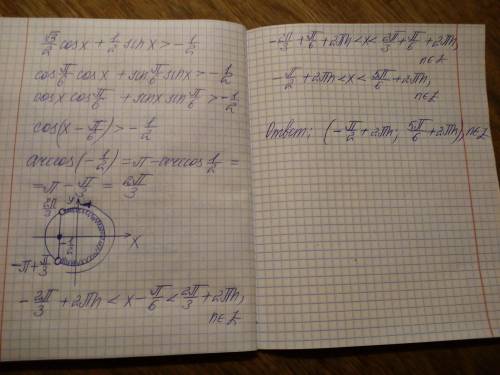 √3/2 cosx + 1/2 sinx > -1/2
cos π/6 cosx + sin π/6 sinx > -1/2
cosx cos π/6 + sinx sin π/6 > -1/2
cos(x - π/6) > -1/2
arccos(-1/2) = π - arccos 1/2 =
= π - π/3 = 2π/3
2π/3
y
X
-π + π/3
-2π/3 + 2πn < x - π/6 < 2π/3 + 2πn,
n∈Z
-2π/3 + π/6 + 2πn < x < 2π/3 + π/6 + 2πn,
n∈Z
-π/2 + 2πn < x < 5π/6 + 2πn,
n∈Z
Ответ: (-π/2 + 2πn; 5π/6 + 2πn), n∈Z